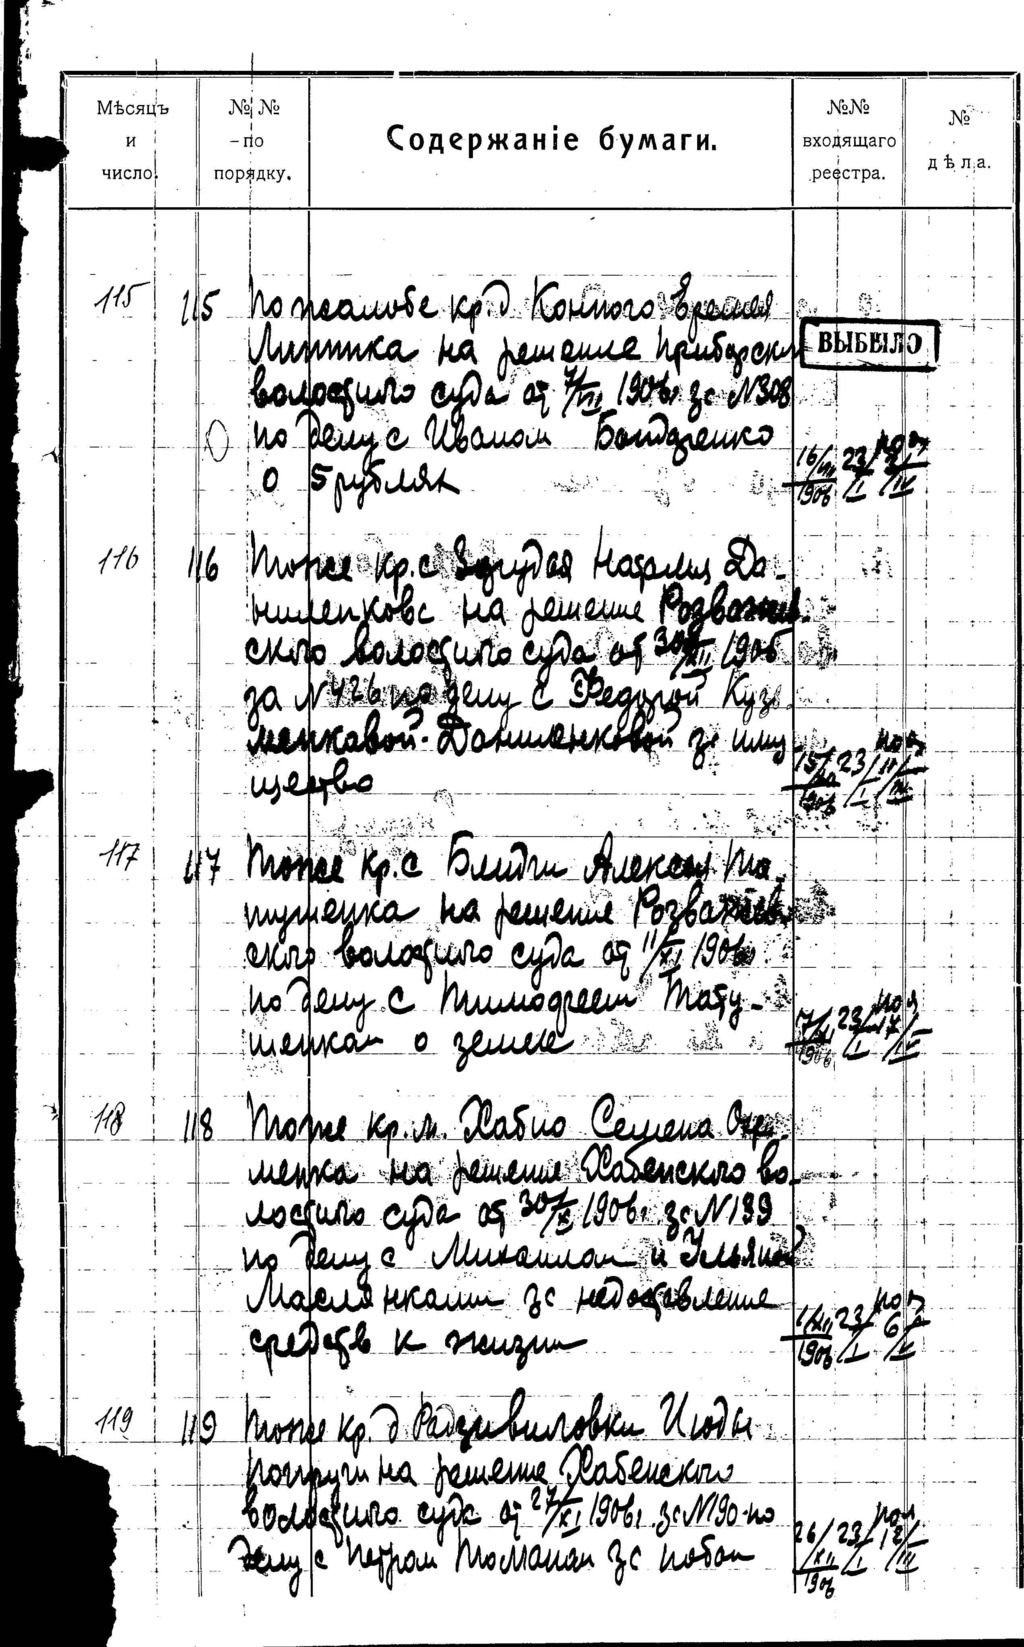 Мѣсяцъ и число. №№ по порядку. Содержаніе бумаги. №№ входящаго реестра. № дѣла.
115 115 По жалобе кр. д.Конного
Липпика на решение Приборск
волостного суда от 7/VII 1906 г. за N308
по делу с Иваном Бондаренко
о 5 рублях
ВЫБЫЛО
16/VII 1906 23/I
116 116 Тоже кр. с. Наталии Да-
ниленковс на решение Розважев-
ского волостного суда от 30/XII 1905
за N426 по делу с Федорой Кузь
менкавой-Даниленковой за иму
щество
15/ 1906 23/I 11/
117 117 Тоже кр. с. Блидчи Алексея Та-
тушенка на решение Розважев
ского волостного суда от 11/XI 1906 г.
по делу с Тимофеем Тату-
шенкам о земле
17/XI 1906 23/I 17/
118 118 Тоже кр. м. Хабно Семена
менка на решение Хабенского во-
лостного суда от 30/X 1906 г. за N199
по делу с Михаилом и Ульяной
Маслянками за недоставление
средств к жизни
1/XII 1906 23/I 6/
119 119 Тоже кр. д. Радзивиловки Июды
на решение Хабенского
волостного суда от 27/XI 1906 г. за N190 по
делу с Петром Толмачом за побои
26/XII 1906 23/I 12/III